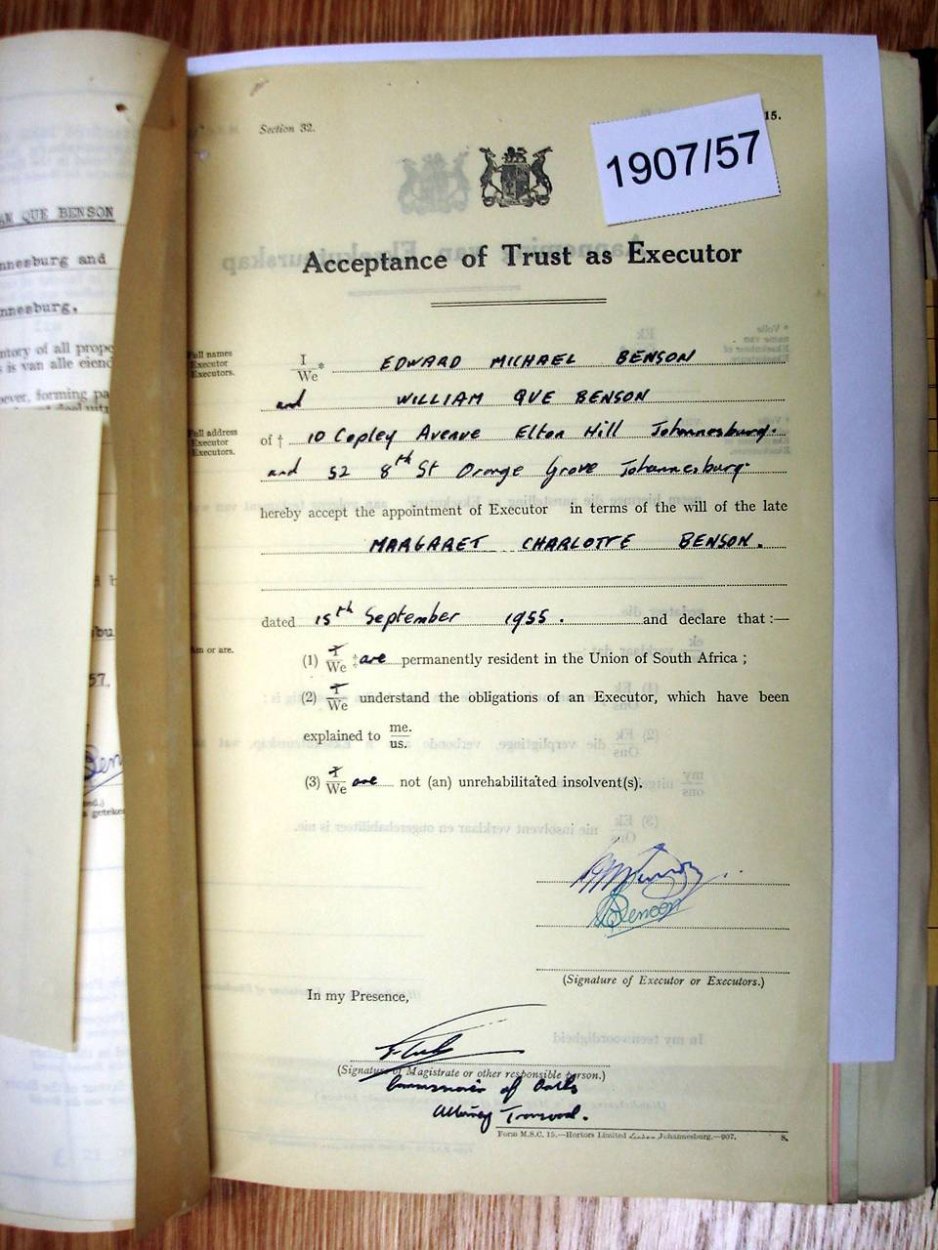 Section 32.
15.
1907/57
Acceptance of Trust as Executor
Full names
Executor
Executors.
I
We* EDWARD MICHAEL BENSON
and WILLIAM QUE BENSON
Full address
Executor
Executors.
of † 10 Copley Avenue Elton Hill Johannesburg.
and 52 8th St Orange Grove Johannesburg.
hereby accept the appointment of Executor in terms of the will of the late
MARGARET CHARLOTTE BENSON.
dated 15th September 1955. and declare that :—
am or are.
(1) I
We ‡ are permanently resident in the Union of South Africa ;
(2) I
We understand the obligations of an Executor, which have been
explained to me.
us.
(3) I
We are not (an) unrehabilitated insolvent(s).
Benson
(Signature of Executor or Executors.)
In my Presence,
(Signature of Magistrate or other responsible person.)
Commissioner of Oaths
Attorney Transvaal.
Form M.S.C. 15.—Hortors Limited Johannesburg.—907. S.
AN QUE BENSON
nnesburg and
nnesburg,
ntory of all prope
s is van alle eiend
ever, forming pa
57.